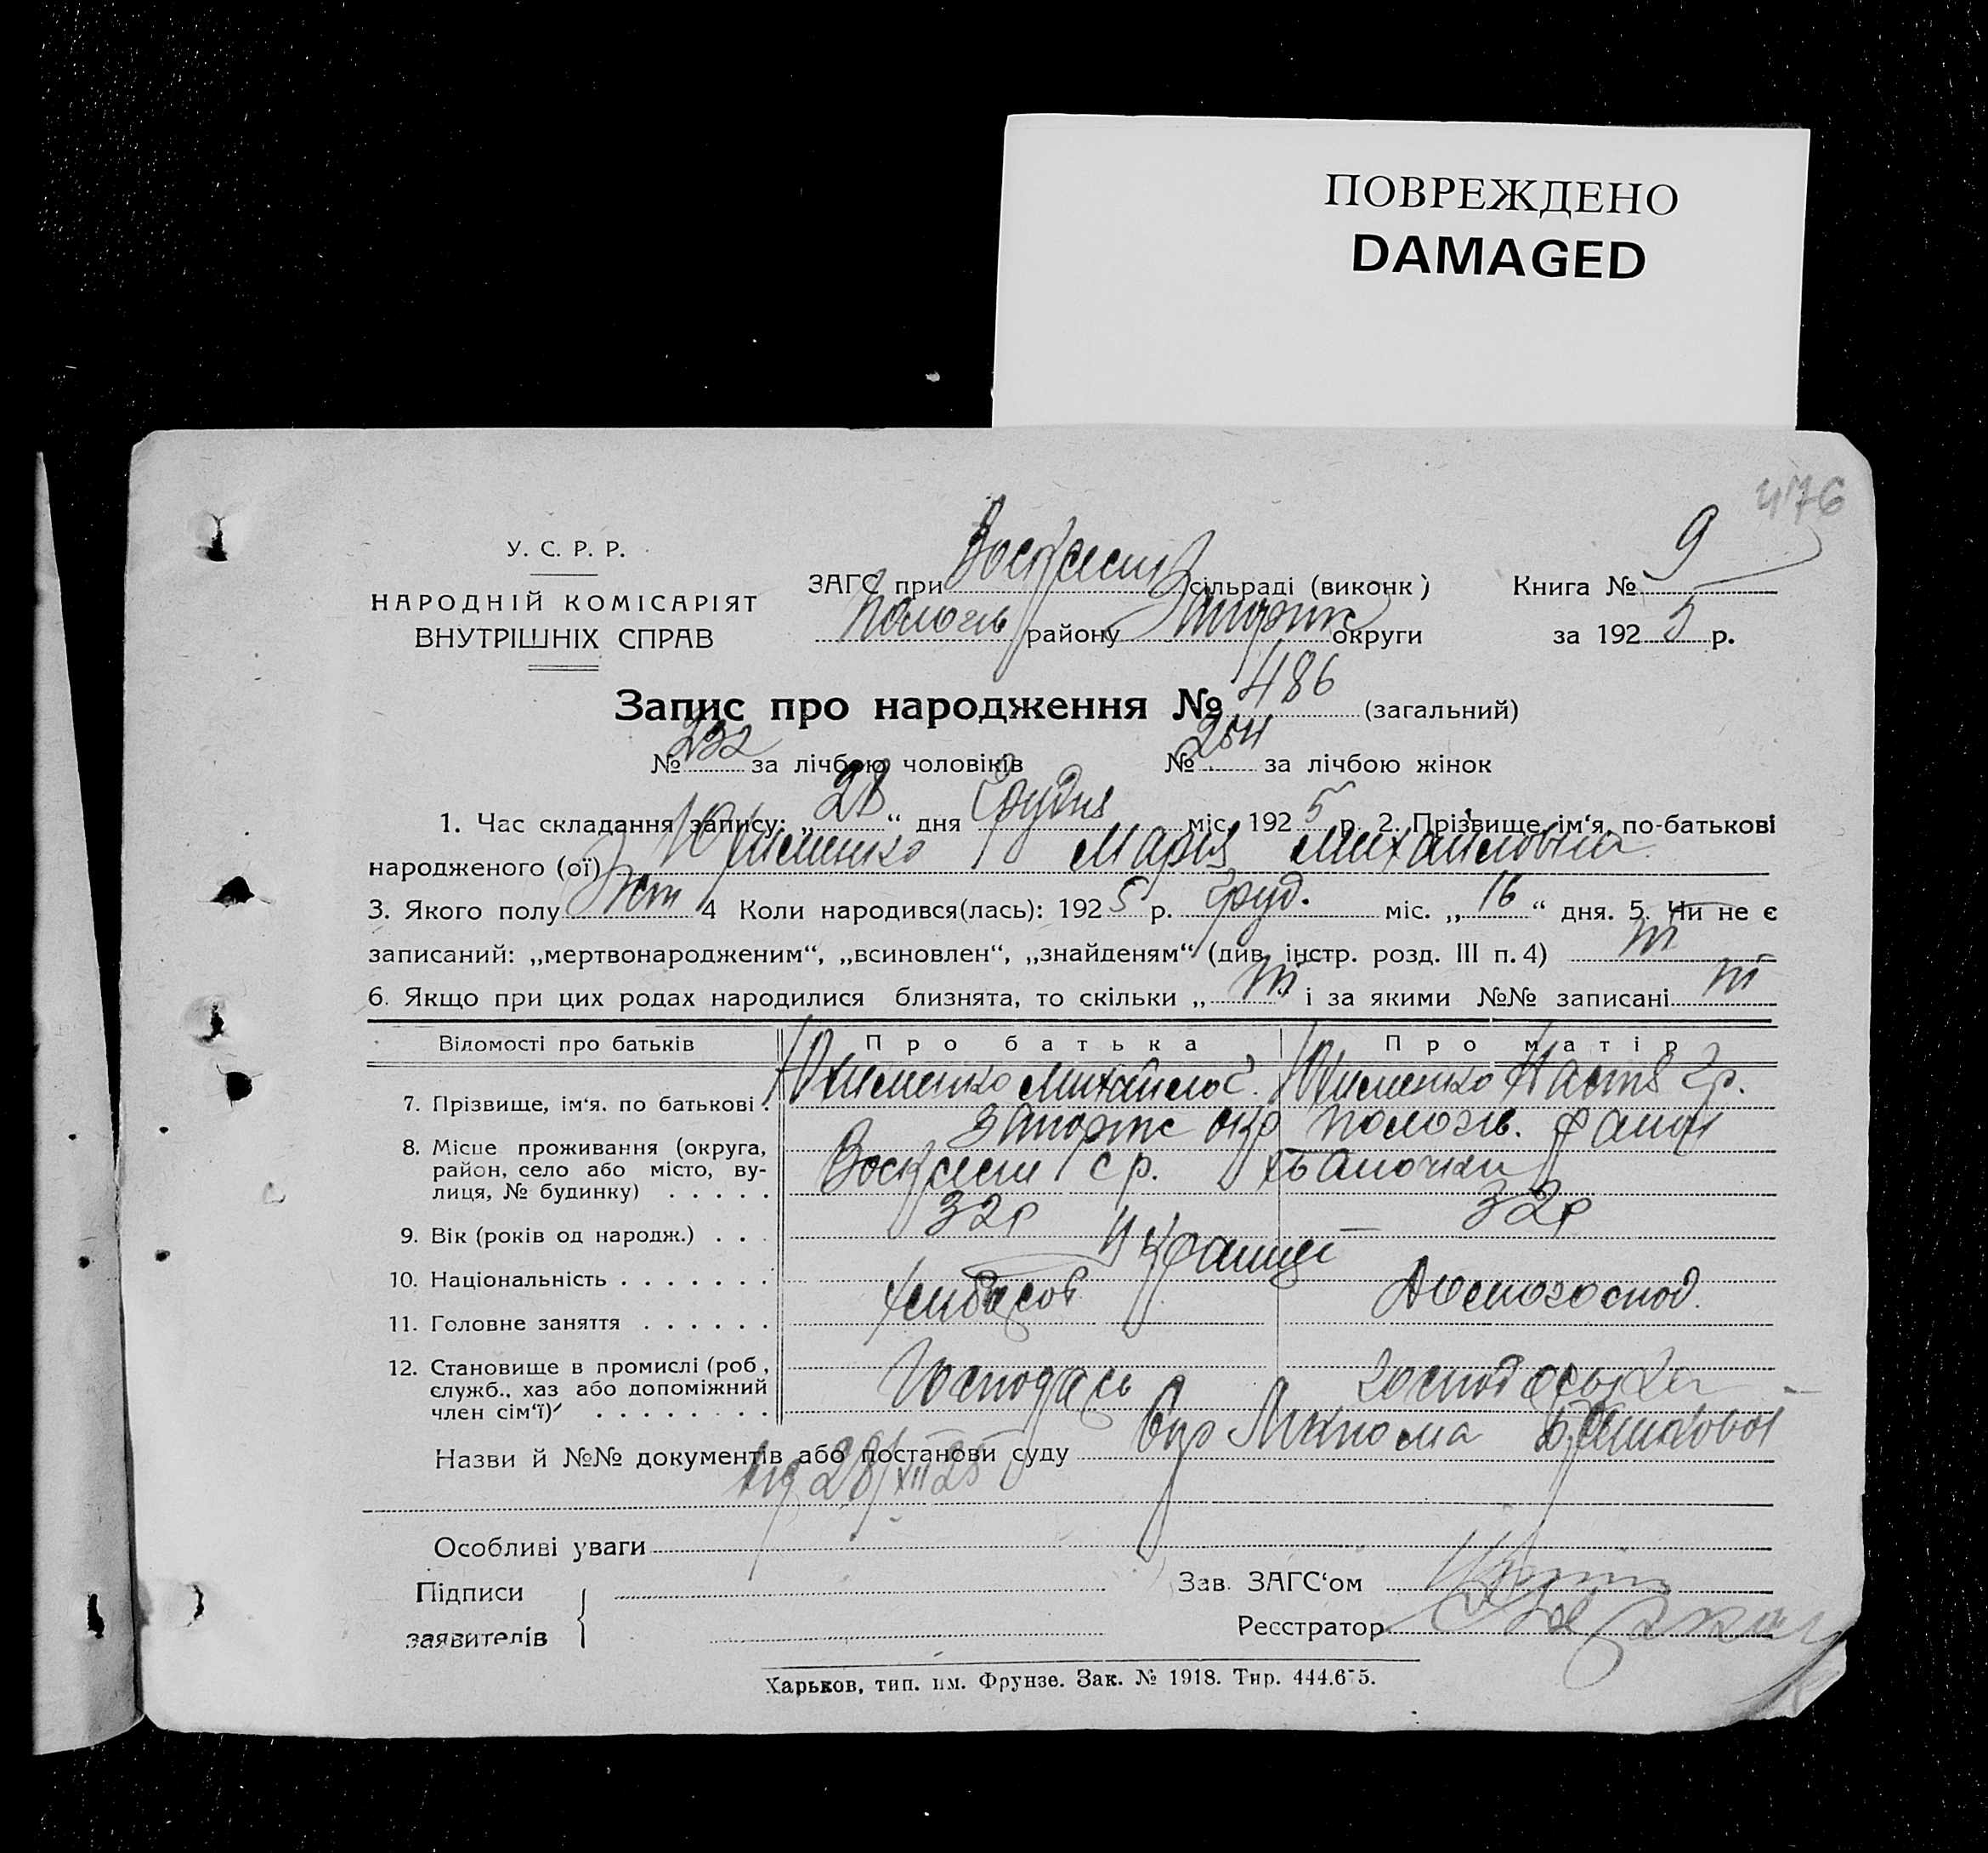 ПОВРЕЖДЕНО
DAMAGED
476
У. С. Р. Р.
НАРОДНІЙ КОМІСАРІЯТ
ВНУТРІШНІХ СПРАВ
ЗАГС при Воскресен сільраді (виконк)
Пологів району Запоріж округи
Книга № 9
за 1925 р.
Запис про народження № 486 (загальний)
№ 232 за лічбою чоловіків № 254 за лічбою жінок
1. Час складання запису: „28“ дня Грудня міс. 1925 р. 2. Прізвище, ім‘я, по-батькові
народженого (ої) Марія Михайловна
3. Якого полу Жін 4 Коли народився(лась): 1925 р. Груд. міс. „16“ дня. 5. Чи не є
записаний: „мертвонародженим“, „всиновлен“, „знайденям“ (див. інстр. розд. III п. 4) ні
6. Якщо при цих родах народилися близнята, то скільки „ ні і за якими №№ записані ні
Відомості про батьків Про батька Про матір
7. Прізвище, ім‘я, по батькові . Михайло Настя Гр.
8. Місце проживання (округа, район, село або місто, вулиця, № будинку) . . . . . Запоріж окр Пологів. району
Воскресен с р.
9. Вік (років од народж.) . . . 32р 32р
10. Національність . . . . . . . Українці
11. Головне заняття . . . . . . Хлібороб Домогоспод.
12. Становище в промислі (роб., служб., хаз або допоміжний член сім‘ї) . . . . . . . . Господарь Господарька
Назви й №№ документів або постанови суду
від 28/XII 25
Особливі уваги
Підписи
заявителів
Зав. ЗАГС‘ом
Реєстратор
Харьков, тип. им. Фрунзе. Зак. № 1918. Тир. 444.675.